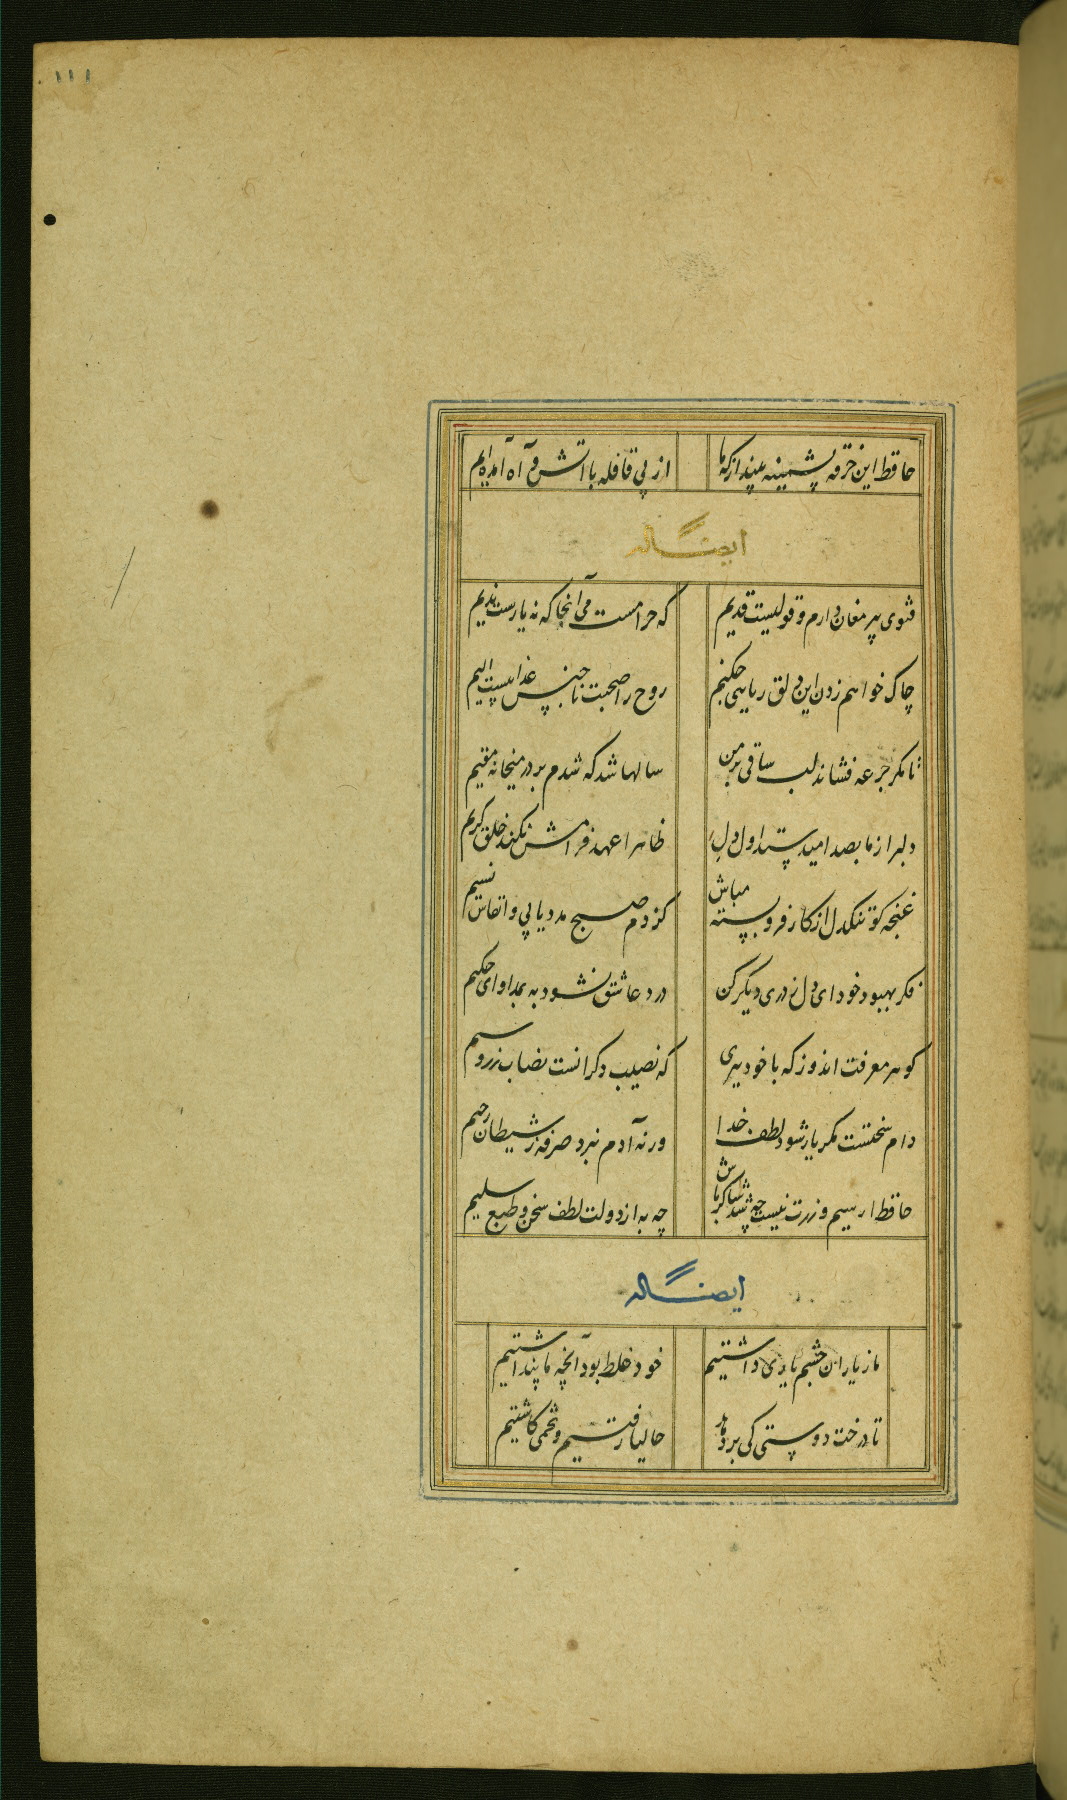 ١١١
حافظ این خرقه پشمینه بینداز که ما
از پی قافله با آتش و آه آمده‌ایم
ایضاً له
فتوی پیر مغان دارم و قولیست قدیم
که حرامست می آنجا که نه یارست ندیم
چاک خواهم زدن این دلق ریایی چکنم
روح را صحبت ناجنس عذابیست الیم
تا مکر جرعه فشاند لب ساقی بر من
سالها شد که شدم بر در میخانه مقیم
دلبر از ما بصد امید ستد اول دل
ظاهرا عهد فرامش نکند خلق کریم
غنچه کو تنکدل از کار فرو بسته مباش
کز دم صبح مدد یابی و انفاس نسیم
فکر بهبود خود ای دل ز دری دیکر کن
درد عاشق نشود به بمداوای حکیم
کوهر معرفت اندوز که با خود ببری
که نصیب دکرانست نصاب زر و سیم
دام سختست مکر یار شود لطف خدا
ورنه آدم نبرد صرفه ز شیطان رحیم
حافظ ار سیم و زرت نیست چه شد شاکر باش
چه به از دولت لطف سخن و طبع سلیم
ایضاً له
ما ز یاران چشم یاری داشتیم
خود غلط بود آنچه ما پنداشتیم
تا درخت دوستی کی بر دهد
حالیا رفتیم و تخمی کاشتیم